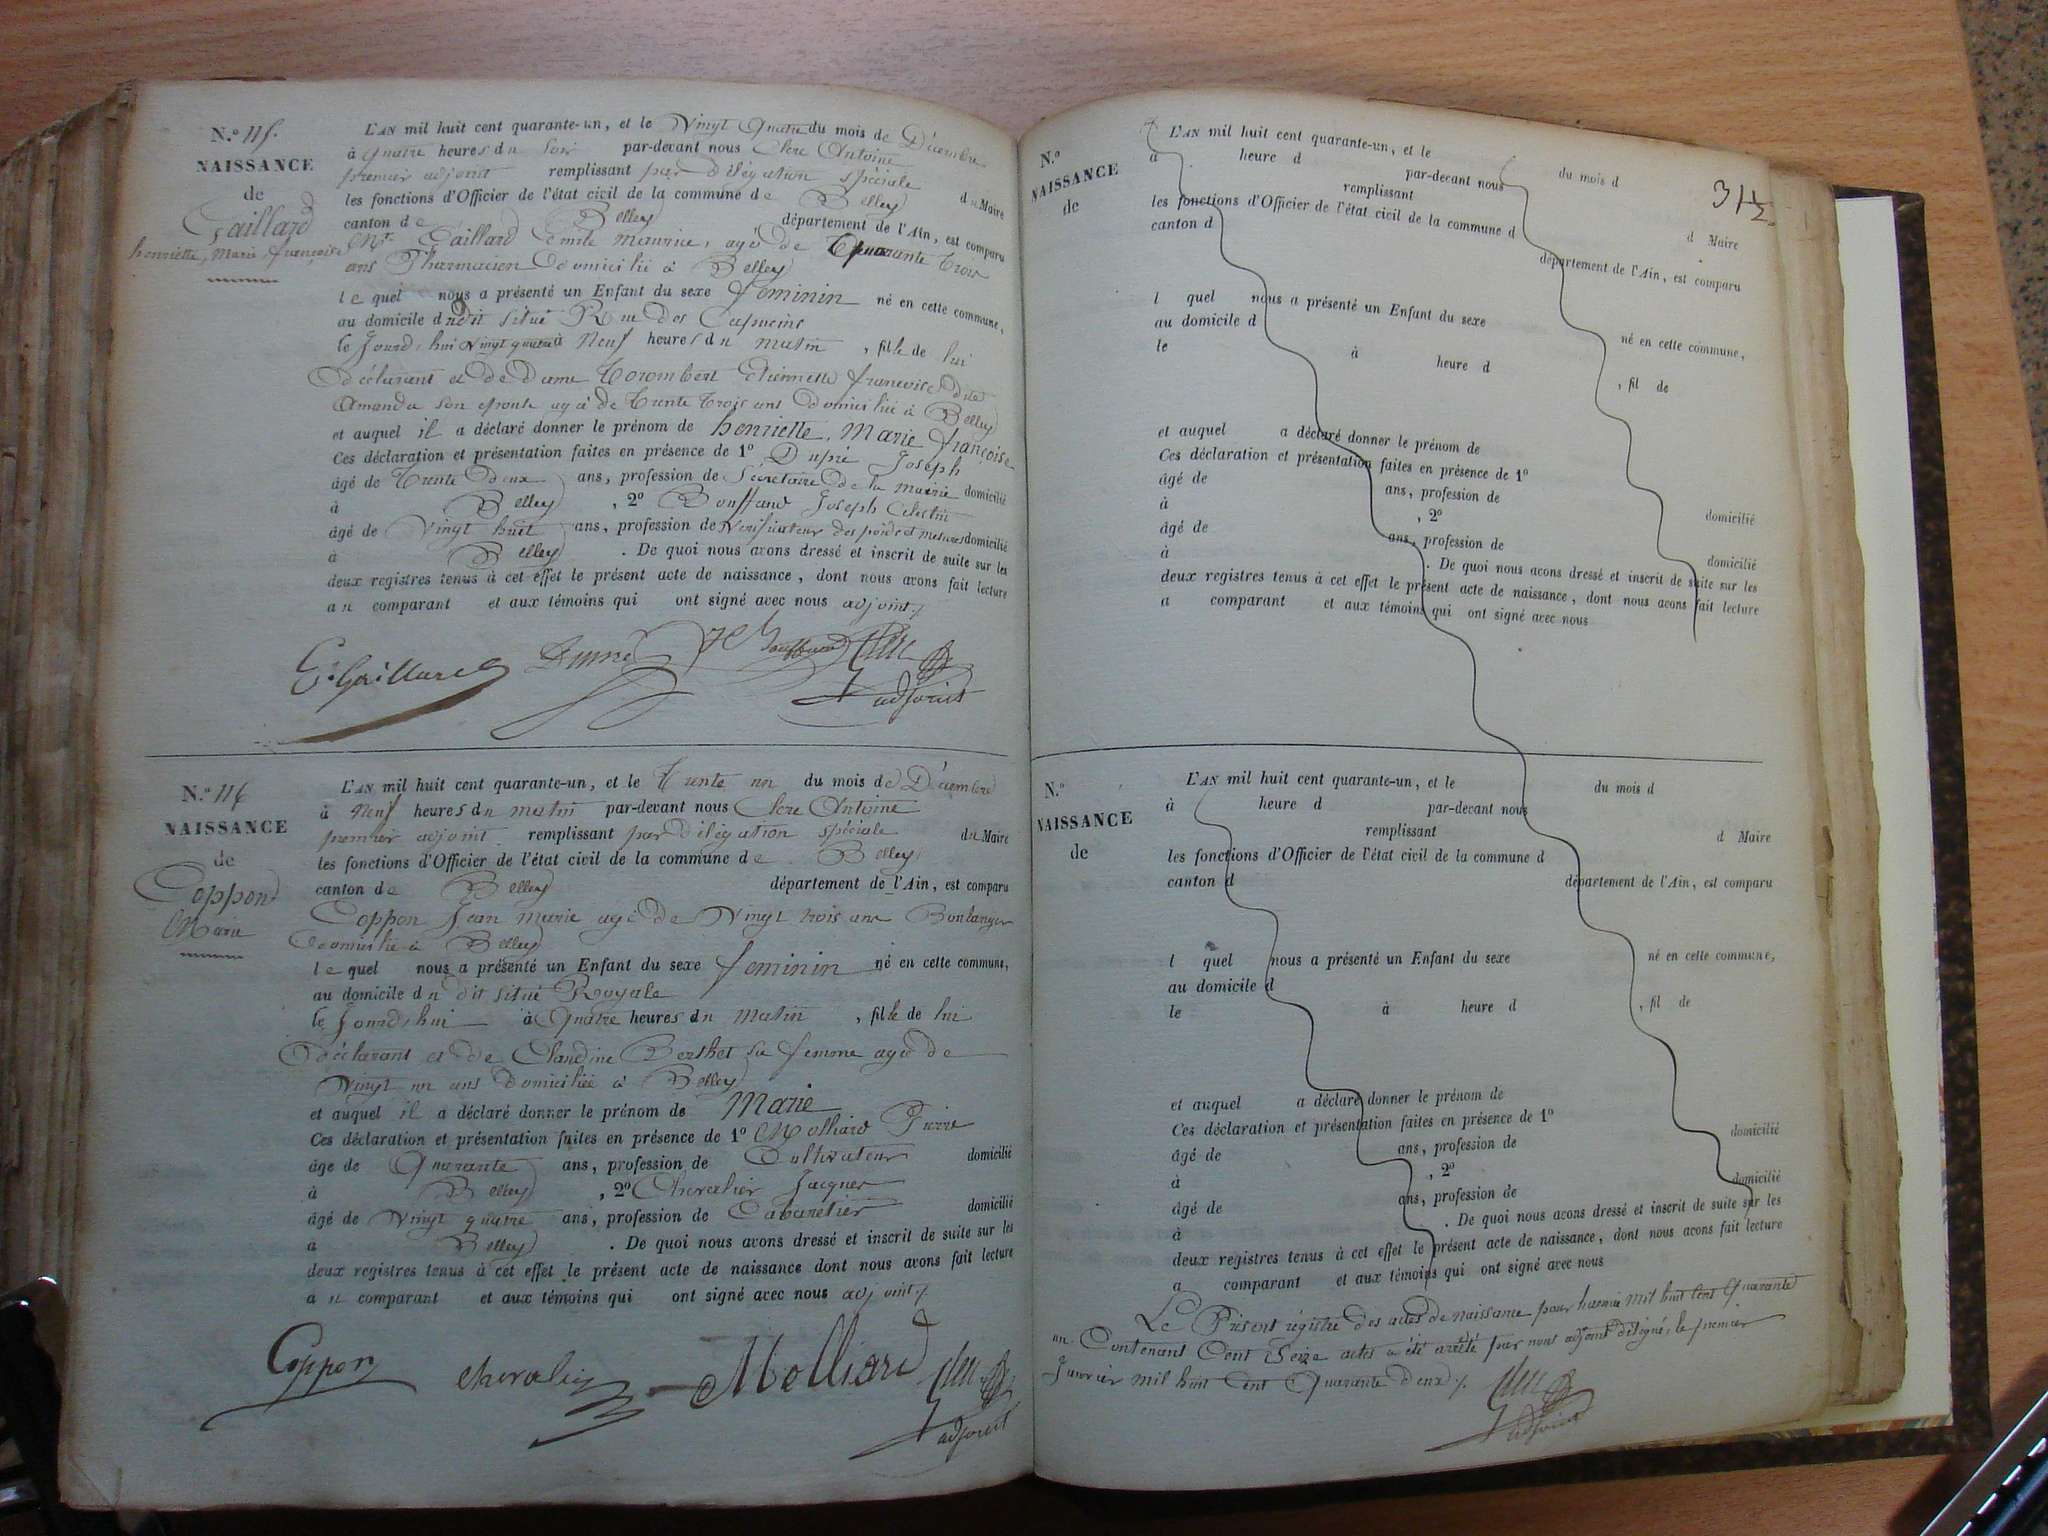 N.º 115.
NAISSANCE
de
Gaillard
henriette, Marie françoise
L'AN mil huit cent quarante-un, et le Vingt Quatre du mois de Décembre
à quatre heures du soir par-devant nous Antoine
premier adjoint remplissant par délégation spéciale du Maire
les fonctions d'Officier de l'état civil de la commune de Belley
canton de Belley département de l'Ain, est comparu
Mr. Gaillard Emile Maurice, agé de Quarante trois
ans Pharmacien Domicilié à Belley
lequel nous a présenté un Enfant du sexe féminin né en cette commune,
au domicile dudit situé Rue des Capucins
le Jourd'hui vingt quatre à Neuf heures du matin, fille de lui
Déclarant et de Dame Torombert Etiennette françoise Dite
Amanda son epouse agée de trente trois ans domiciliée à Belley
et auquel il a déclaré donner le prénom de henriette, Marie françoise
Ces déclaration et présentation faites en présence de 1º Dupré Joseph
âgé de trente deux ans, profession de Sécrétaire de la mairie domicilié
à Belley, 2º Bouffand Joseph Célestin
âgé de Vingt huit ans, profession de Vérificateur des poids et mesures domicilié
à Belley. De quoi nous avons dressé et inscrit de suite sur les
deux registres tenus à cet effet le présent acte de naissance, dont nous avons fait lecture
au comparant et aux témoins qui ont signé avec nous adjoint ./.
E. Gaillard Dupré Bouffand
adjoint
N.º 116
NAISSANCE
de
Coppon
Marie
L'AN mil huit cent quarante-un, et le trente un du mois de Décembre
à Neuf heures du matin par-devant nous Antoine
premier adjoint remplissant par délégation spéciale du Maire
les fonctions d'Officier de l'état civil de la commune de Belley
canton de Belley département de l'Ain, est comparu
Coppon Jean Marie agé de Vingt trois ans Boulanger
Domicilié à Belley
lequel nous a présenté un Enfant du sexe féminin né en cette commune,
au domicile du dit situé Royale
le Jourd'hui à Quatre heures du Matin, fille de lui
Déclarant et de Claudine Berthet sa femme agée de
Vingt un ans Domiciliée à Belley
et auquel il a déclaré donner le prénom de Marie
Ces déclaration et présentation faites en présence de 1º Molliard Pierre
âgé de Quarante ans, profession de Cultivateur domicilié
à Belley, 2º Chevalier Jacques
âgé de Vingt quatre ans, profession de Cabaretier domicilié
à Belley. De quoi nous avons dressé et inscrit de suite sur les
deux registres tenus à cet effet le présent acte de naissance dont nous avons fait lecture
au comparant et aux témoins qui ont signé avec nous adjoint ./.
Coppon chevalier Molliard
adjoint
31 1/2
N.º
NAISSANCE
de
L'AN mil huit cent quarante-un, et le du mois d
à heure d par-devant nous
remplissant d Maire
les fonctions d'Officier de l'état civil de la commune d
canton d département de l'Ain, est comparu
l quel nous a présenté un Enfant du sexe né en cette commune,
au domicile d
le à heure d , fil de
et auquel a déclaré donner le prénom de
Ces déclaration et présentation faites en présence de 1º
âgé de ans, profession de domicilié
à , 2º
âgé de ans, profession de domicilié
à . De quoi nous avons dressé et inscrit de suite sur les
deux registres tenus à cet effet le présent acte de naissance, dont nous avons fait lecture
a comparant et aux témoins qui ont signé avec nous
N.º
NAISSANCE
de
L'AN mil huit cent quarante-un, et le du mois d
à heure d par-devant nous
remplissant d Maire
les fonctions d'Officier de l'état civil de la commune d
canton d département de l'Ain, est comparu
l quel nous a présenté un Enfant du sexe né en cette commune,
au domicile d
le à heure d , fil de
et auquel a déclaré donner le prénom de
Ces déclaration et présentation faites en présence de 1º
âgé de ans, profession de domicilié
à , 2º
âgé de ans, profession de domicilié
à . De quoi nous avons dressé et inscrit de suite sur les
deux registres tenus à cet effet le présent acte de naissance, dont nous avons fait lecture
a comparant et aux témoins qui ont signé avec nous
Le Présent régistre des actes de naissance pour l'année mil huit Cent Quarante
un. Contenant Cent Seize actes a été arrêté par nous adjoint délégué, le premier
Janvier mil huit Cent Quarante deux ./.
adjoint